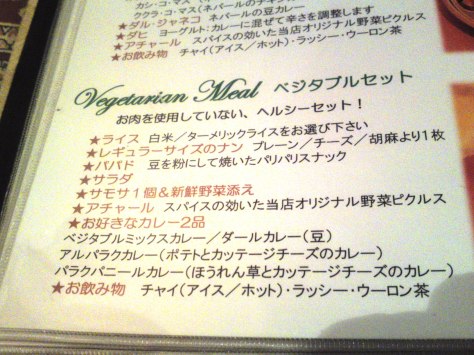 カシ・コ・マス（ネパールのチキン
ククラ・コ・マス（ネパールの
★ダル・ジャネコ ネパールの豆カレー
★ダヒ ヨーグルト:カレーに混ぜて辛さを調整します
★アチャール スパイスの効いた当店オリジナル野菜ピクルス
★お飲み物 チャイ（アイス／ホット）・ラッシー・ウーロン茶
Vegetarian Meal ベジタブルセット
お肉を使用していない、ヘルシーセット！
★ライス 白米／ターメリックライスをお選び下さい
★レギュラーサイズのナン プレーン／チーズ／胡麻より1枚
★パパド 豆を粉にして焼いたパリパリスナック
★サラダ
★サモサ1個＆新鮮野菜添え
★アチャール スパイスの効いた当店オリジナル野菜ピクルス
★お好きなカレー2品
ベジタブルミックスカレー／ダールカレー（豆）
アルパラクカレー（ポテトとカッテージチーズのカレー）
パラクパニールカレー（ほうれん草とカッテージチーズのカレー）
★お飲み物 チャイ（アイス／ホット）・ラッシー・ウーロン茶